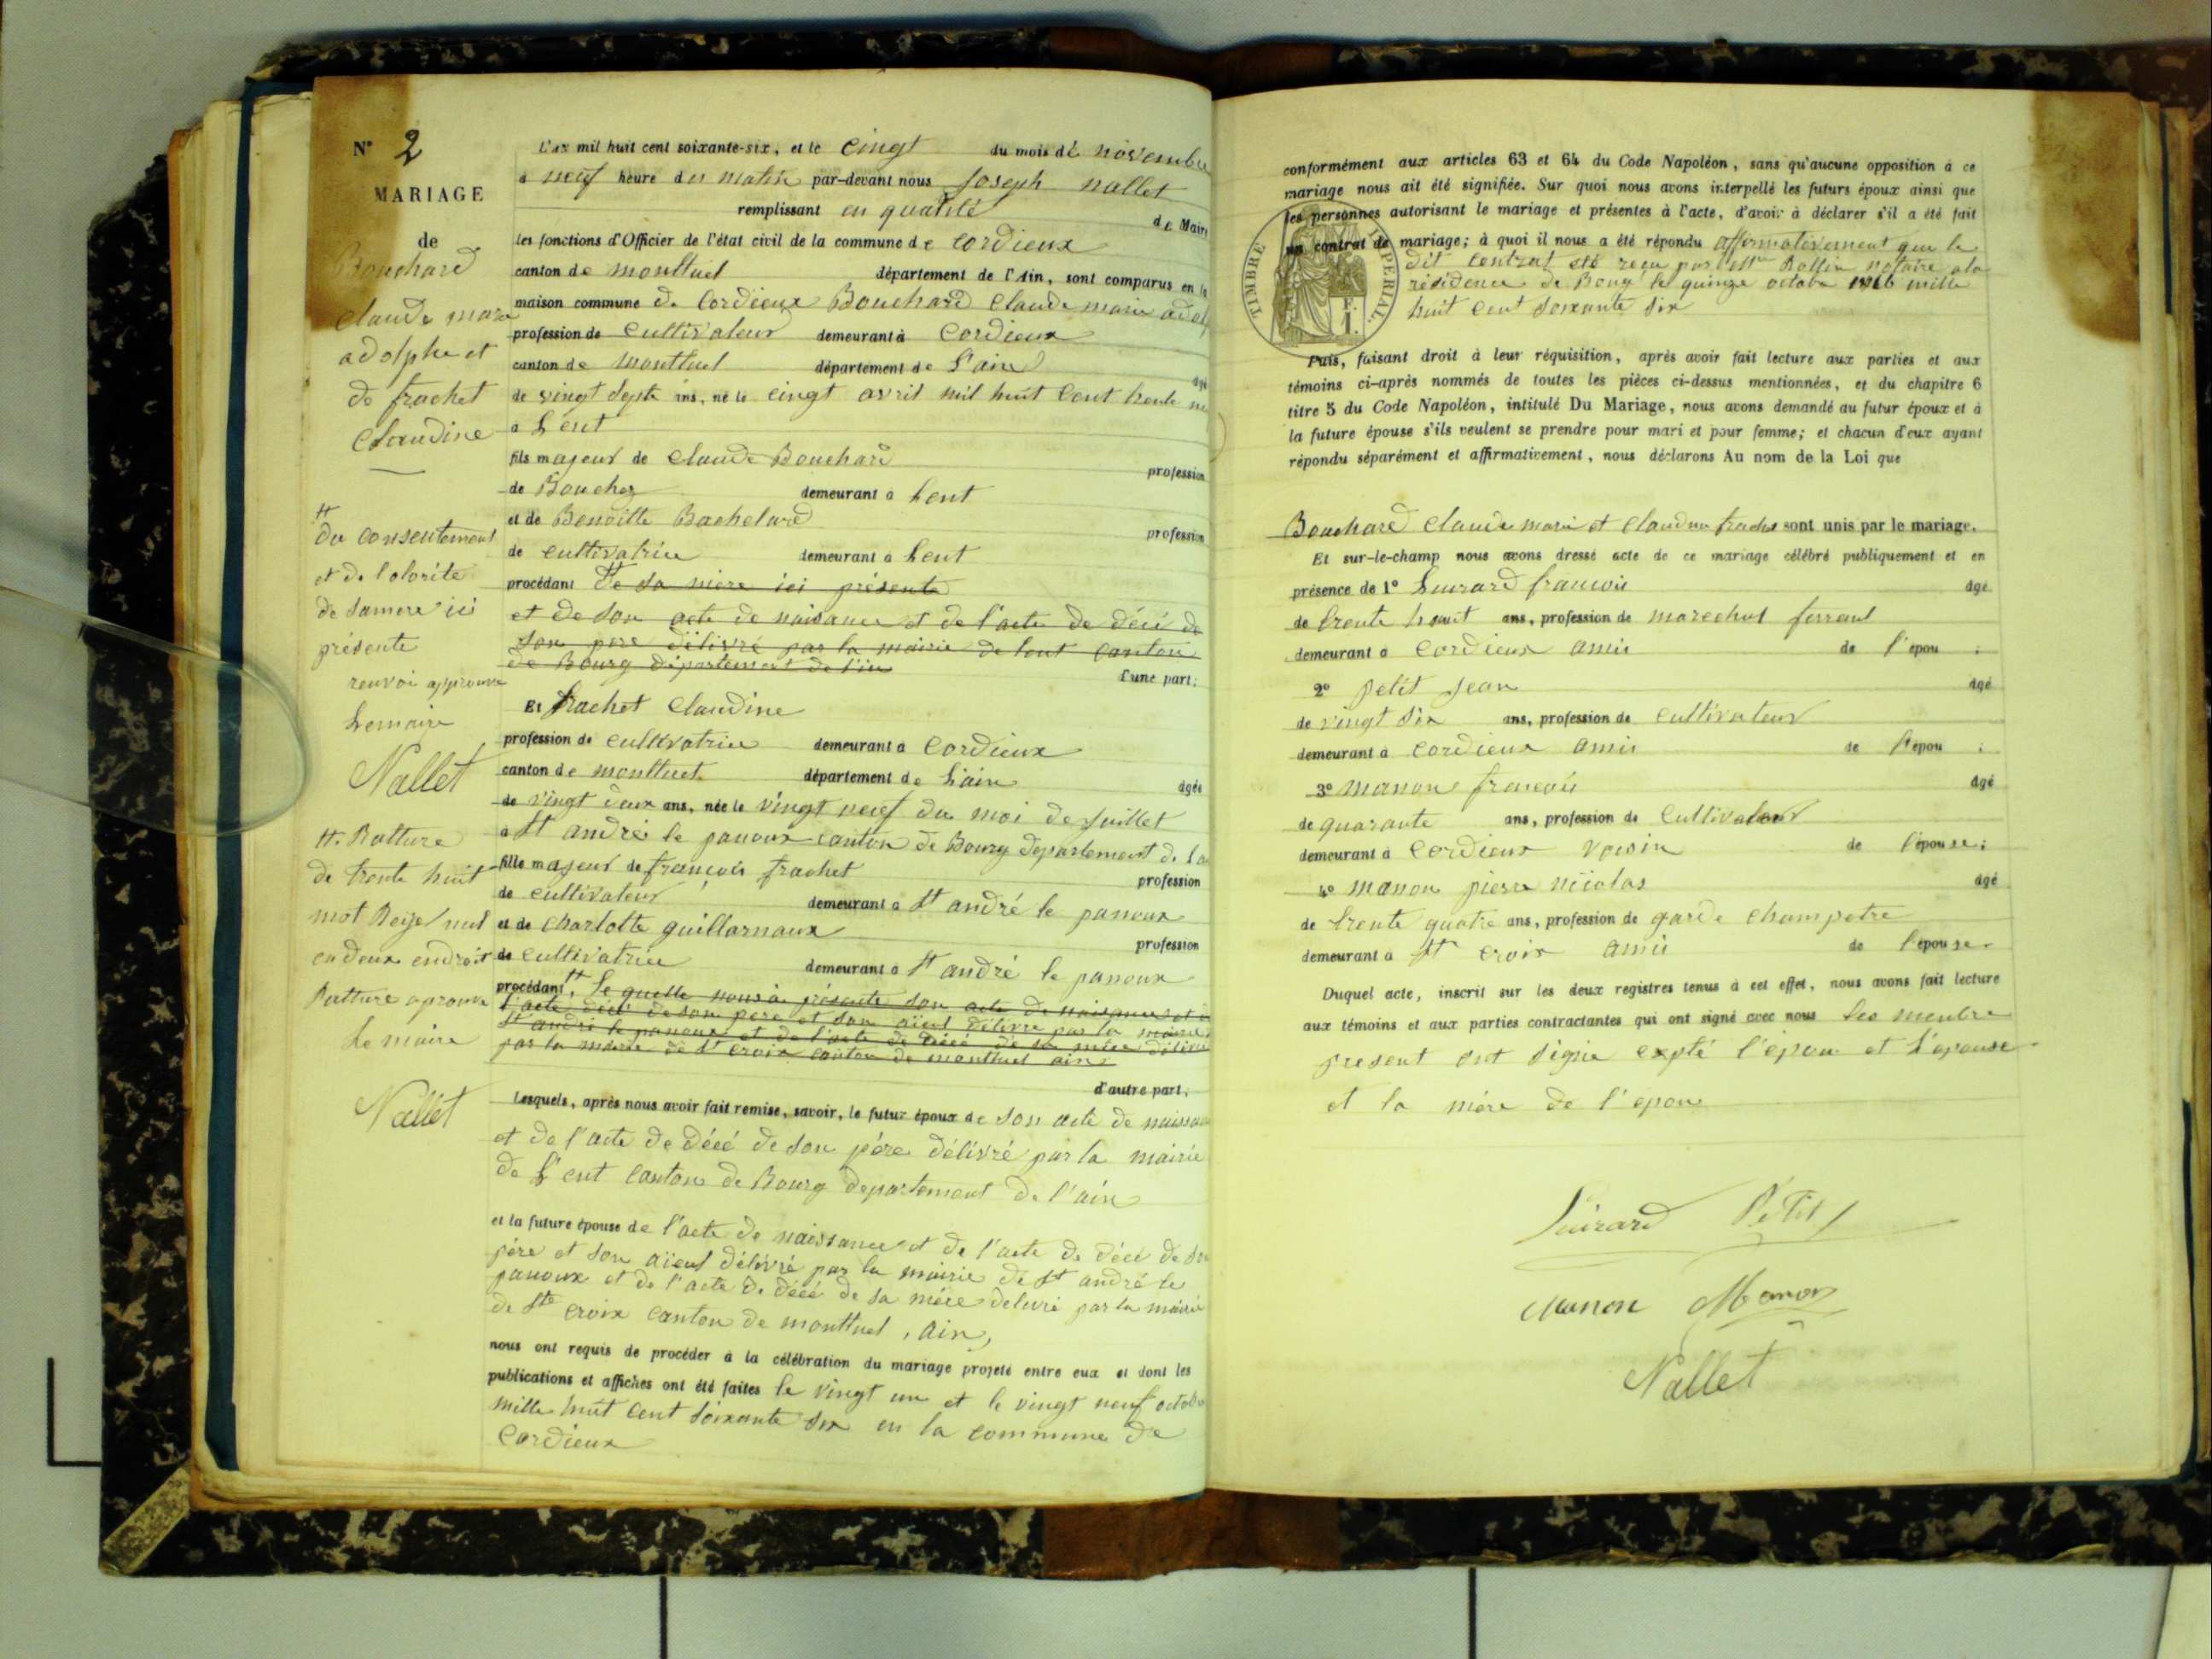 N° 2
MARIAGE
de
Bouchard
Claude marie
adolphe et
de frachet
Claudine
L'an mil huit cent soixante-six, et le cingt du mois de novembre
à neuf heure du matin par-devant nous Joseph nallet
remplissant en qualité de Maire
les fonctions d'Officier de l'état civil de la commune de cordieux
canton de montluel département de l'Ain, sont comparus en la
maison commune de Cordieux Bouchard Claude marie adol
profession de Cultivateur demeurant à Cordieux
canton de montluel département de l'ain âgé
de vingt sept ans, né le cingt avril mil huit cent trente
à Lent
fils majeur de Claude Bouchard profession
de Boucher demeurant à Lent
et de Benoitte Bachelard profession
de cultivatrice demeurant à Lent
procédant de sa mère ici présente
et de son acte de naisance et de l'acte de décé de
son pere délivré par la mairie de lent canton
de Bourg département de l'ain
d'une part;
H
du consentement
et de l'otorité
de samere ici
présente
renvoi approuvé
Lemaire
Nallet
Et frachet Claudine
profession de cultivatrice demeurant à Cordieux
canton de montluel département de L'ain âgée
de vingt deux ans, née le vingt neuf du moi de Juillet
à St andré le panoux canton de Bourg département de l'a
fille majeur de françois frachet profession
de cultivateur demeurant à St andré le panoux
et de Charlotte guillarnaux profession
de cultivatrice demeurant à St andré le panoux
procédant, le quelle nous à présenté son acte de naisance et
l'acte décé de son pere et son aieul délivré par la mairie
St andré le panoux et de l'acte de décé de sa mère délivré
par la mairie de St croix canton de montluel ain
d'autre part.
H. Ratture
de trente huit
mot Reyé nul
en deux endroit
Ratture aprouvé
Le maire
Nallet
Lesquels, après nous avoir fait remise, savoir, le futur époux de son acte de naissan
et de l'acte de décé de son pére délivré par la mairie
de Lent canton de Bourg département de l'ain
et la future épouse de l'acte de naissance et de l'acte de décé de son
pére et son aïeul délivré par la mairie de St andré le
panoux et de l'acte de décé de sa mére delivré par la mairie
de Ste croix canton de montluel, ain,
nous ont requis de procéder à la célébration du mariage projeté entre eux et dont les
publications et affiches ont été faites le vingt un et le vingt neuf octobre
mille huit cent soixante six en la commune de
Cordieux
conformément aux articles 63 et 64 du Code Napoléon, sans qu'aucune opposition à ce
mariage nous ait été signifiée. Sur quoi nous avons interpellé les futurs époux ainsi que
les personnes autorisant le mariage et présentes à l'acte, d'avoir à déclarer s'il a été fait
un contrat de mariage; à quoi il nous a été répondu affirmativement que le
dit contrat été reçu par Rollin notaire ala
résidence de Bourg le quinze octobre mille
huit cent soixante six
TIMBRE IMPERIAL
Puis, faisant droit à leur réquisition, après avoir fait lecture aux parties et aux
témoins ci-après nommés de toutes les pièces ci-dessus mentionnées, et du chapitre 6
titre 5 du Code Napoléon, intitulé Du Mariage, nous avons demandé au futur époux et à
la future épouse s'ils veulent se prendre pour mari et pour femme; et chacun d'eux ayant
répondu séparément et affirmativement, nous déclarons Au nom de la Loi que
Bouchard Claude marie et Claudine frachet sont unis par le mariage.
Et sur-le-champ nous avons dressé acte de ce mariage célébré publiquement et en
présence de 1° françois âgé
de trente huit ans, profession de marechal ferrant
demeurant à Cordieux amis de l'épou ;
2° petit Jean âgé
de vingt six ans, profession de cultivateur
demeurant à Cordieux amis de l'épou ;
3° manon françois âgé
de quarante ans, profession de Cultivateur
demeurant à Cordieux voisin de l'épouse;
4° manon pierre nicolas âgé
de trente quatre ans, profession de garde champetre
demeurant à St croix amis de l'épouse.
Duquel acte, inscrit sur les deux registres tenus à cet effet, nous avons fait lecture
aux témoins et aux parties contractantes qui ont signé avec nous les membre
present ont signé expté l'epou et L'epouse
et la mère de l'epou
Petit
Manon Manon
Nallet